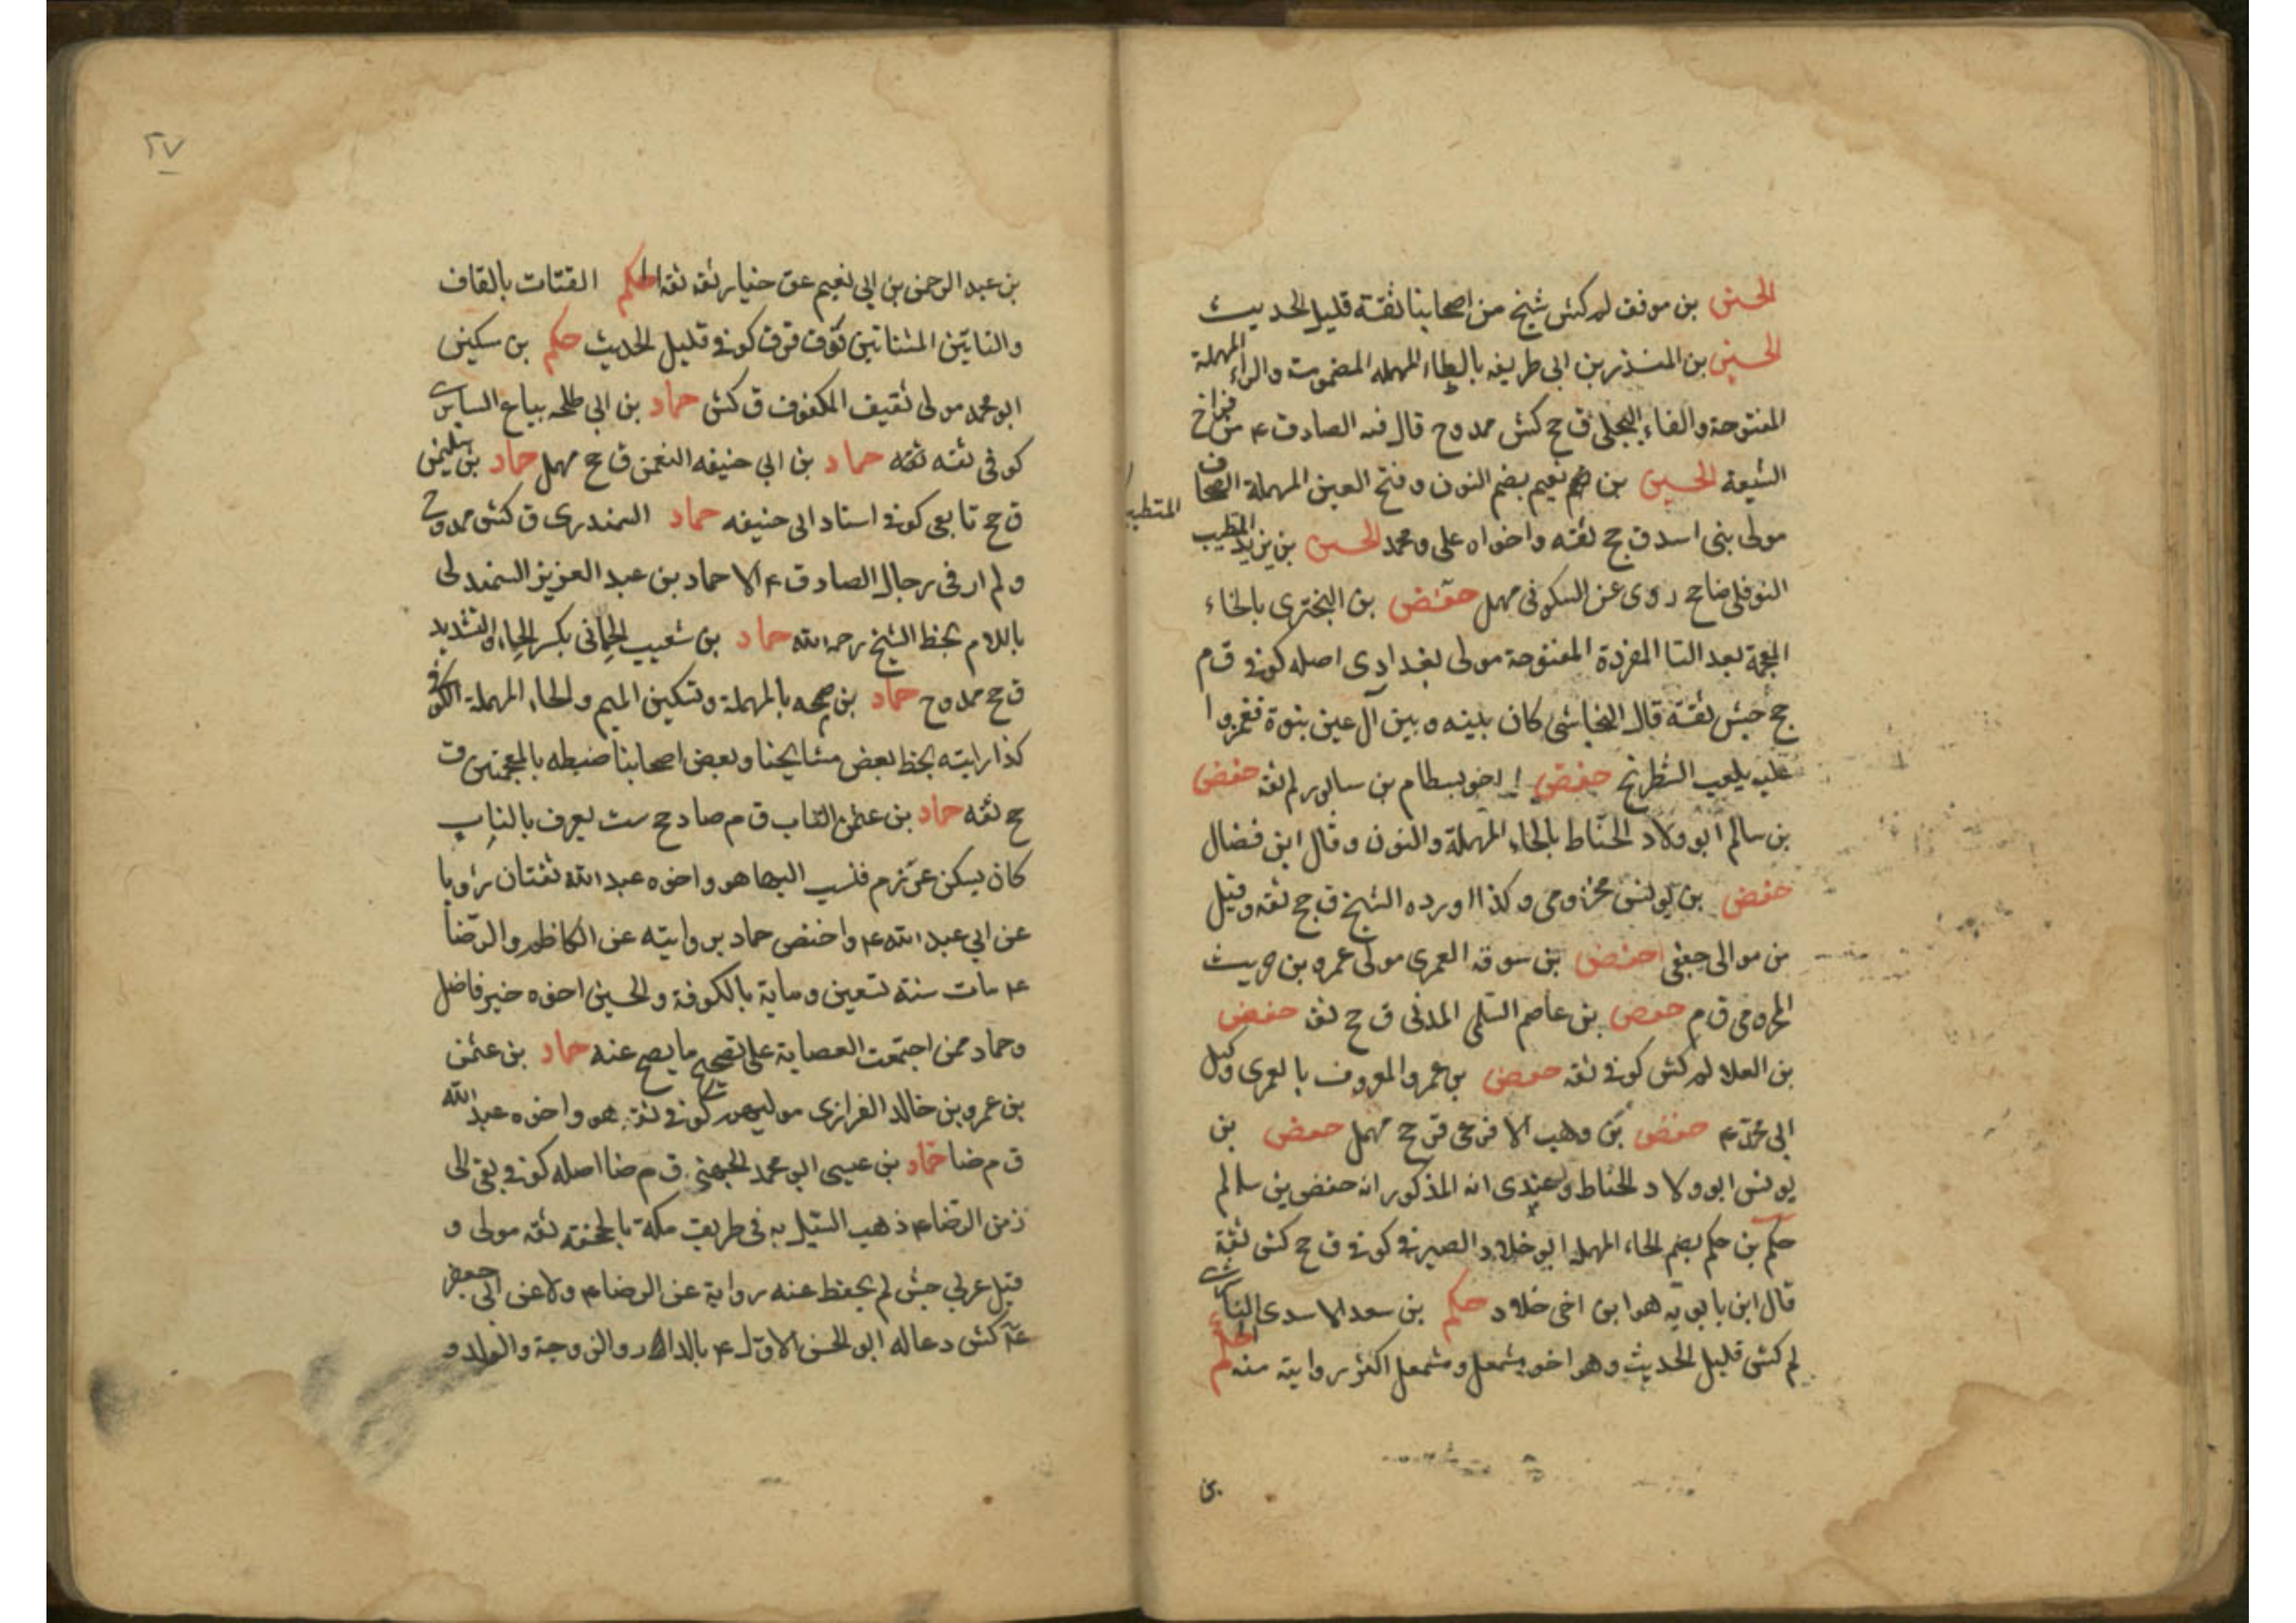 الحسين بن موفق لم كش شيخ من اصحابنا ثقة قليل الحديث
الحسين بن المنذر بن ابى طريفه بالطاء المهمله المضمومة والراء المهملة
المفتوحة والفاء البجلى ق جح كش ممدوح قال فيه الصادق ع من فراخ
الشيعة الحسين بن نعيم بضم النون وفتح العين المهملة الصحاف
مولى بنى اسد ق جح ثقه واخواه على ومحمد الحسين بن يزيد المتطبب
المتطبب
النوفلى ضا جح روى عن السكونى مهمل حفص بن البخترى بالخاء
المعجمة بعد التا المفردة المفتوحة مولى بغدادى اصله كوفى ق م
جح جش ثقة قال النجاشى كان بينه وبين آل عين بنوة فغمزوا
عليه بلعب الشطرنج حفص اخو بسطام بن سابور لم ثقه حفص
بن سالم ابو ولاد الحناط بالحاء المهملة والنون وقال ابن فضال
حفص بن يونس مخزومى وكذا اورده الشيخ ق جح ثقه وقيل
من موالى جعفى حفص بن سوقه العمرى مولى عمرو بن حريث
المخزومى ق م حفص بن عاصم السلمى المدنى ق جح ثقه حفص
بن العلا لم كش كوفى ثقه حفص بن عمرو المعروف بالعمرى وكيل
ابى محمد ع حفص بن وهب الافرعى ق جح مهمل حفص بن
يونس ابو ولاد الحناط وعندى انه المذكور انه حفص بن سالم
حكم بن حكم بضم الحاء المهمله ابو خلاد الصيرفى كوفى ق جح كش ثقة
قال ابن بابويه هو ابن اخى خلاد حكم بن سعد الاسدى الناشرى
لم كش قليل الحديث وهو اخو مشمعل ومشمعل اكثر رواية منه الحكم
بن
٢٧
بن عبد الرحمن بن ابى نعيم عق خيار ثقه ثقه الحكم القتات بالقاف
والتائين المثناتين فوق ق كوفى قليل الحديث حكم بن سكين
ابو محمد مولى ثقيف المكفوف ق كش حماد بن ابى طلحه بياع السابرى
كوفى ثقه ثقه حماد بن ابى حنيفه النعمن ق جح مهمل حماد بن سليمن
ق جح تابعى كوفى استاد ابى حنيفه حماد السمندرى ق كش ممدوح
ولم ار فى رجال الصادق ع الا حماد بن عبد العزيز السمندلى
باللام بخط الشيخ رحمه الله حماد بن شعيب الحمانى بكسر الحاء والتشديد
ق جح ممدوح حماد بن صمحه بالمهملة وتسكين الميم والحاء المهملة الكوفى
كذا رايته بخط بعض مشايخنا وبعض اصحابنا ضبطه بالمعجمتين ق
جح ثقه حماد بن عثمن الناب ق م ضا د جح ست يعرف بالناب
كان يسكن عرزم فنسب اليها هو واخوه عبد الله ثقتان رويا
عن ابى عبد الله ع واختص حماد بروايته عن الكاظم والرضا
ع مات سنة تسعين وماية بالكوفة والحسين اخوه خير فاضل
وحماد ممن اجتمعت العصابة على تصحيح ما يصح عنه حماد بن عثمن
بن عمرو بن خالد الفزازى مولهم كوفى ثقه هو واخوه عبد الله
ق م ضا حماد بن عيسى ابو محمد الجهنى ق م ضا اصله كوفى بقى الى
زمن الرضا ع ذهب السيل به فى طريق مكة بالجحفه ثقه مولى و
قيل عربى جش لم يحفظ عنه رواية عن الرضا ع ولا عن ابى جعفر
ع كش دعا له ابو الحسن الاول ع بالدار والزوجة والولد و